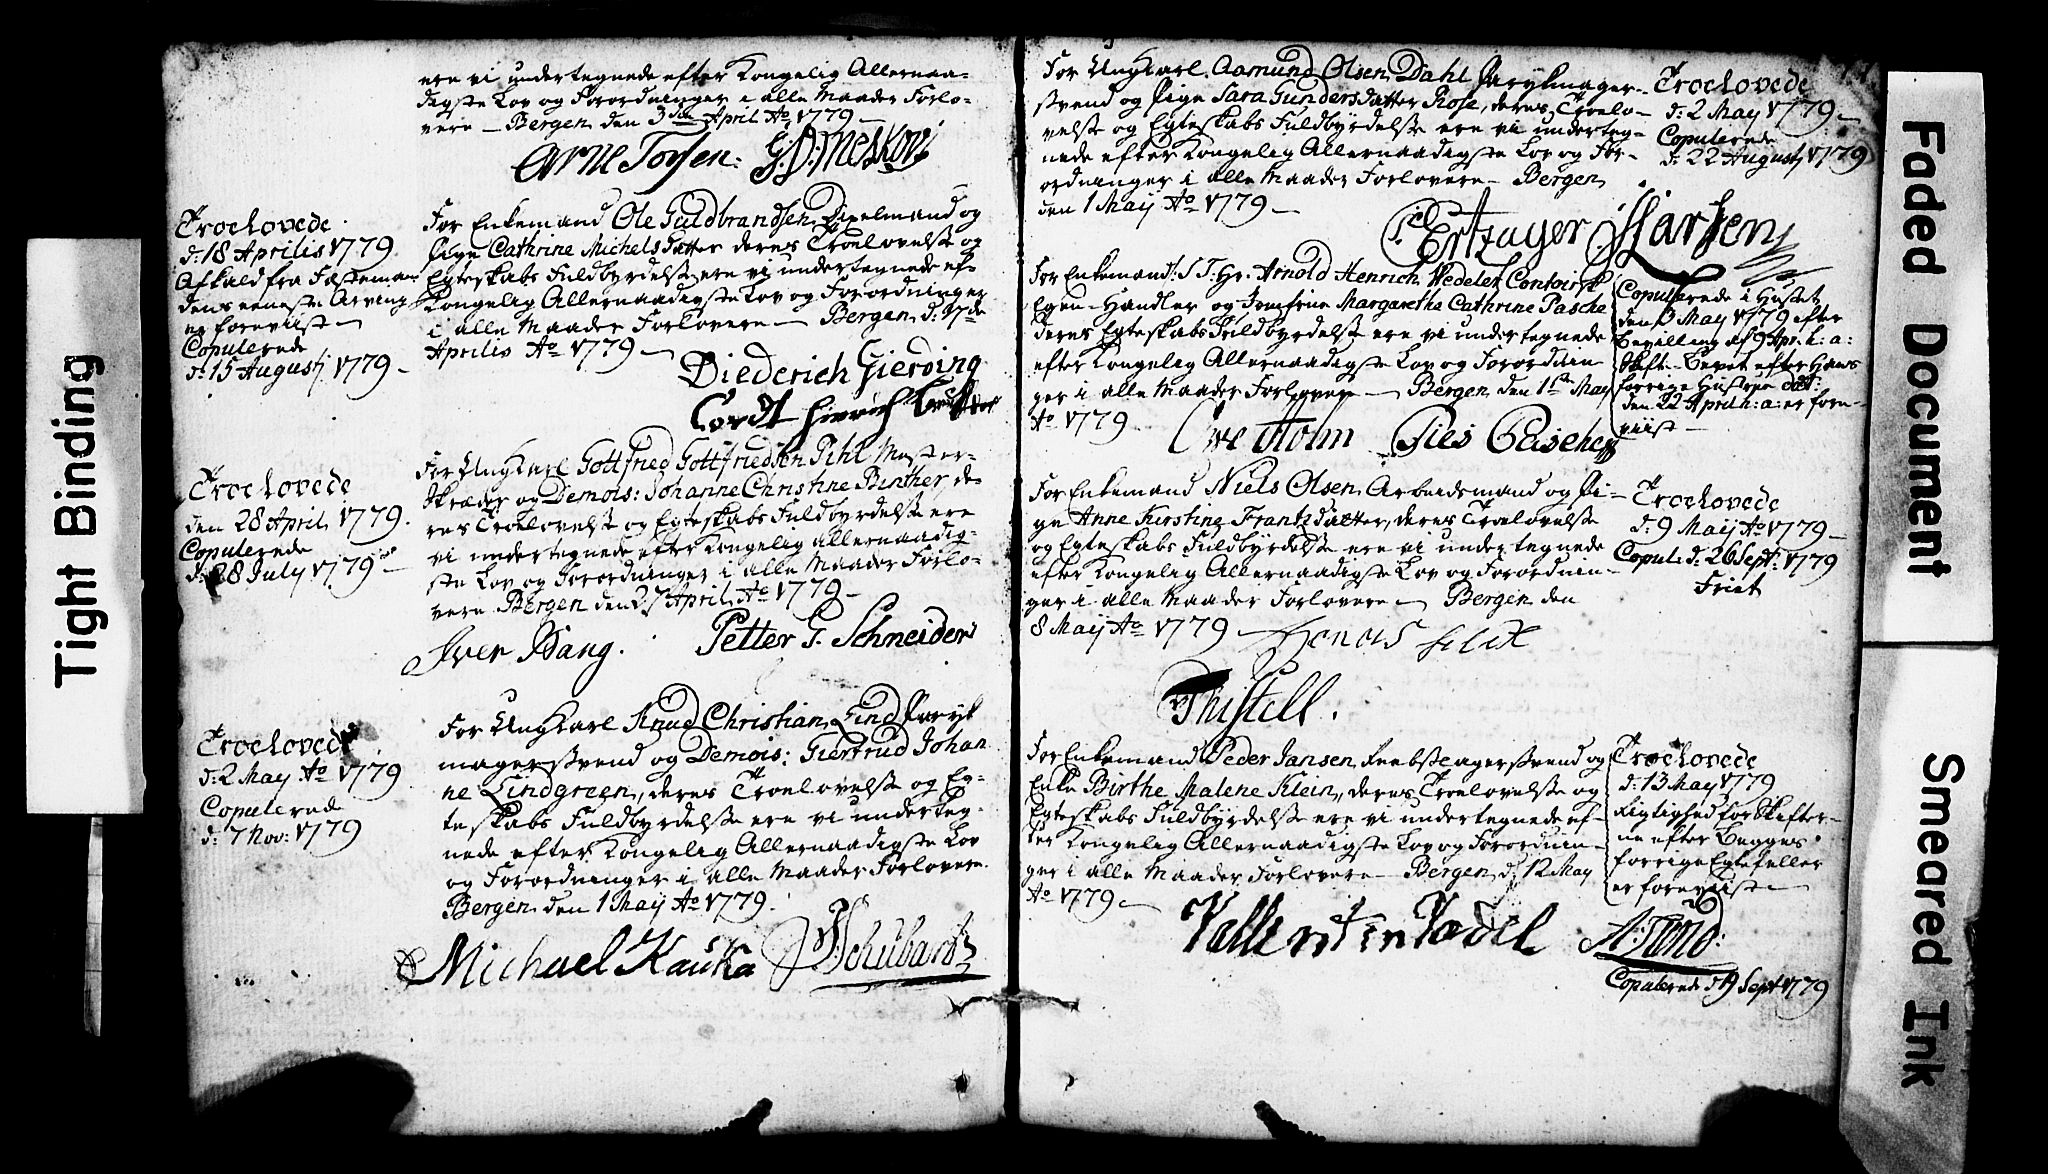 ere vi undertegnede efter Kongelig Allernaa-
digste Lov og Forordninger i alle Maader Forlo-
vere — Bergen den 3die April Ao 1779 —
Arne Torsen: G: D: Meskov
Troelovede
d: 18 Aprilis 1779
Afkald fra Fæsteman
dens eeneste Arving
er foreviist —
Copulerede
d: 15 Augusti 1779 -
For Enkemand Ole Guldbrandsen Dixelmand og
Pige Cathrine Michelsdatter deres Troelovelse og
Egteskabs Fuldbyrdelse ere vi undertegnede ef-
Kongelig Allernaadigste Lov og Forordninger
i alle Maader Forlovere — Bergen d. 17de
Aprilis Ao 1779 —
Diederich Gierding
Cordt Hinrich
Troelovede
den 28 April 1779.
Copulerede
d: 28 July 1779 —
For Ungkarl Gottfried Gottfriedsen Pihl Mester-
Skræder og Demois: Johanne Christine Bünther, de-
res Troelovelse og Egteskabs Fuldbyrdelse ere
vi undertegnede efter Kongelig allernaadig-
ste Lov og Forordninger i alle Maader Forlo-
vere. Bergen den 27 April Ao 1779 —
Iver Bang. Petter G. Schneider
Troelovede
d: 2 May Ao 1779
Copulerede
d: 7 Nov: 1779
For Ungkarl Knud Christian Lind Paryk
magersvend og Demois: Giertrud Johan
ne Lindgreen, deres Troelovelse og Eg-
teskabs Fuldbyrdelse ere vi underteg-
nede efter Kongelig Allernaadigste Lov
og Forordninger i alle Maader Forlovere.
Bergen den 1 Maij Ao 1779.
Michael Kauka Schubart
For Ungkarl Aamund Olsen Dahl Parykmager-
svend og Pige Sara Gundersdatter Rose, deres Troelo-
velse og Egteskabs Fuldbyrdelse ere vi underteg-
nede efter Kongelig Allernaadigste Lov og For-
ordninger i alle Maader Forlovere — Bergen
den 1 Maij Ao 1779 —
Troelovede
d: 2 May 1779 —
Copulerede
d: 22 Augusti 1779
P. Ertzager Hartzen
For Enkemand: S T: Hr. Arnold Henrich Wedeler Contoirsk
Egen-Handler og Jomfrue Margaretha Cathrine Pasche
deres Egteskabs Fuldbyrdelse ere vi undertegnede
efter Kongelig Allernaadigste Lov og Forordnin-
ger i alle Maader Forlovere — Bergen den 1ste May
Ao 1779
Copulerede i Huset
den 3 May 1779 efter
Bevilling af 9 Apr. h: a:
Skifte-Brevet efter Hans
forrige Hustrue dat:
den 22 April h: a: er fore-
viist —
Owe Holm Gies Paschen
For Enkemand Niels Olsen Arbeidsmand og Pi-
ge Anne Kirstine Frantzdatter, deres Troelovelse
og Egteskabs Fuldbyrdelse ere vi undertegnede
efter Kongelig Allernaadigste Lov og Forordnin-
ger i alle Maader Forlovere — Bergen den
8 Maij Ao 1779 —
Troelovede
d: 9 Maij Ao 1779 —
Copul: d: 26 Sept: 1779
Friet
Thistell.
For Enkemand Peder Jansen Reebslagersvend og
Enke Birthe Malene Klein, deres Troelovelse og
Egteskabs Fuldbyrdelse ere vi undertegnede ef-
ter Kongelig Allernaadigste Lov og Forordnin-
ger i alle Maader Forlovere — Bergen d. 12 May
Ao 1779 —
Troelovede
d: 13 May 1779
Rigtighed for Skifter-
ne efter Begges
forrige Egtefeller
er foreviiste —
Vallentin Vedel A: Lund:
Copulerede d 19 Sept 1779
Tight Binding
Faded Document
Smeared Ink